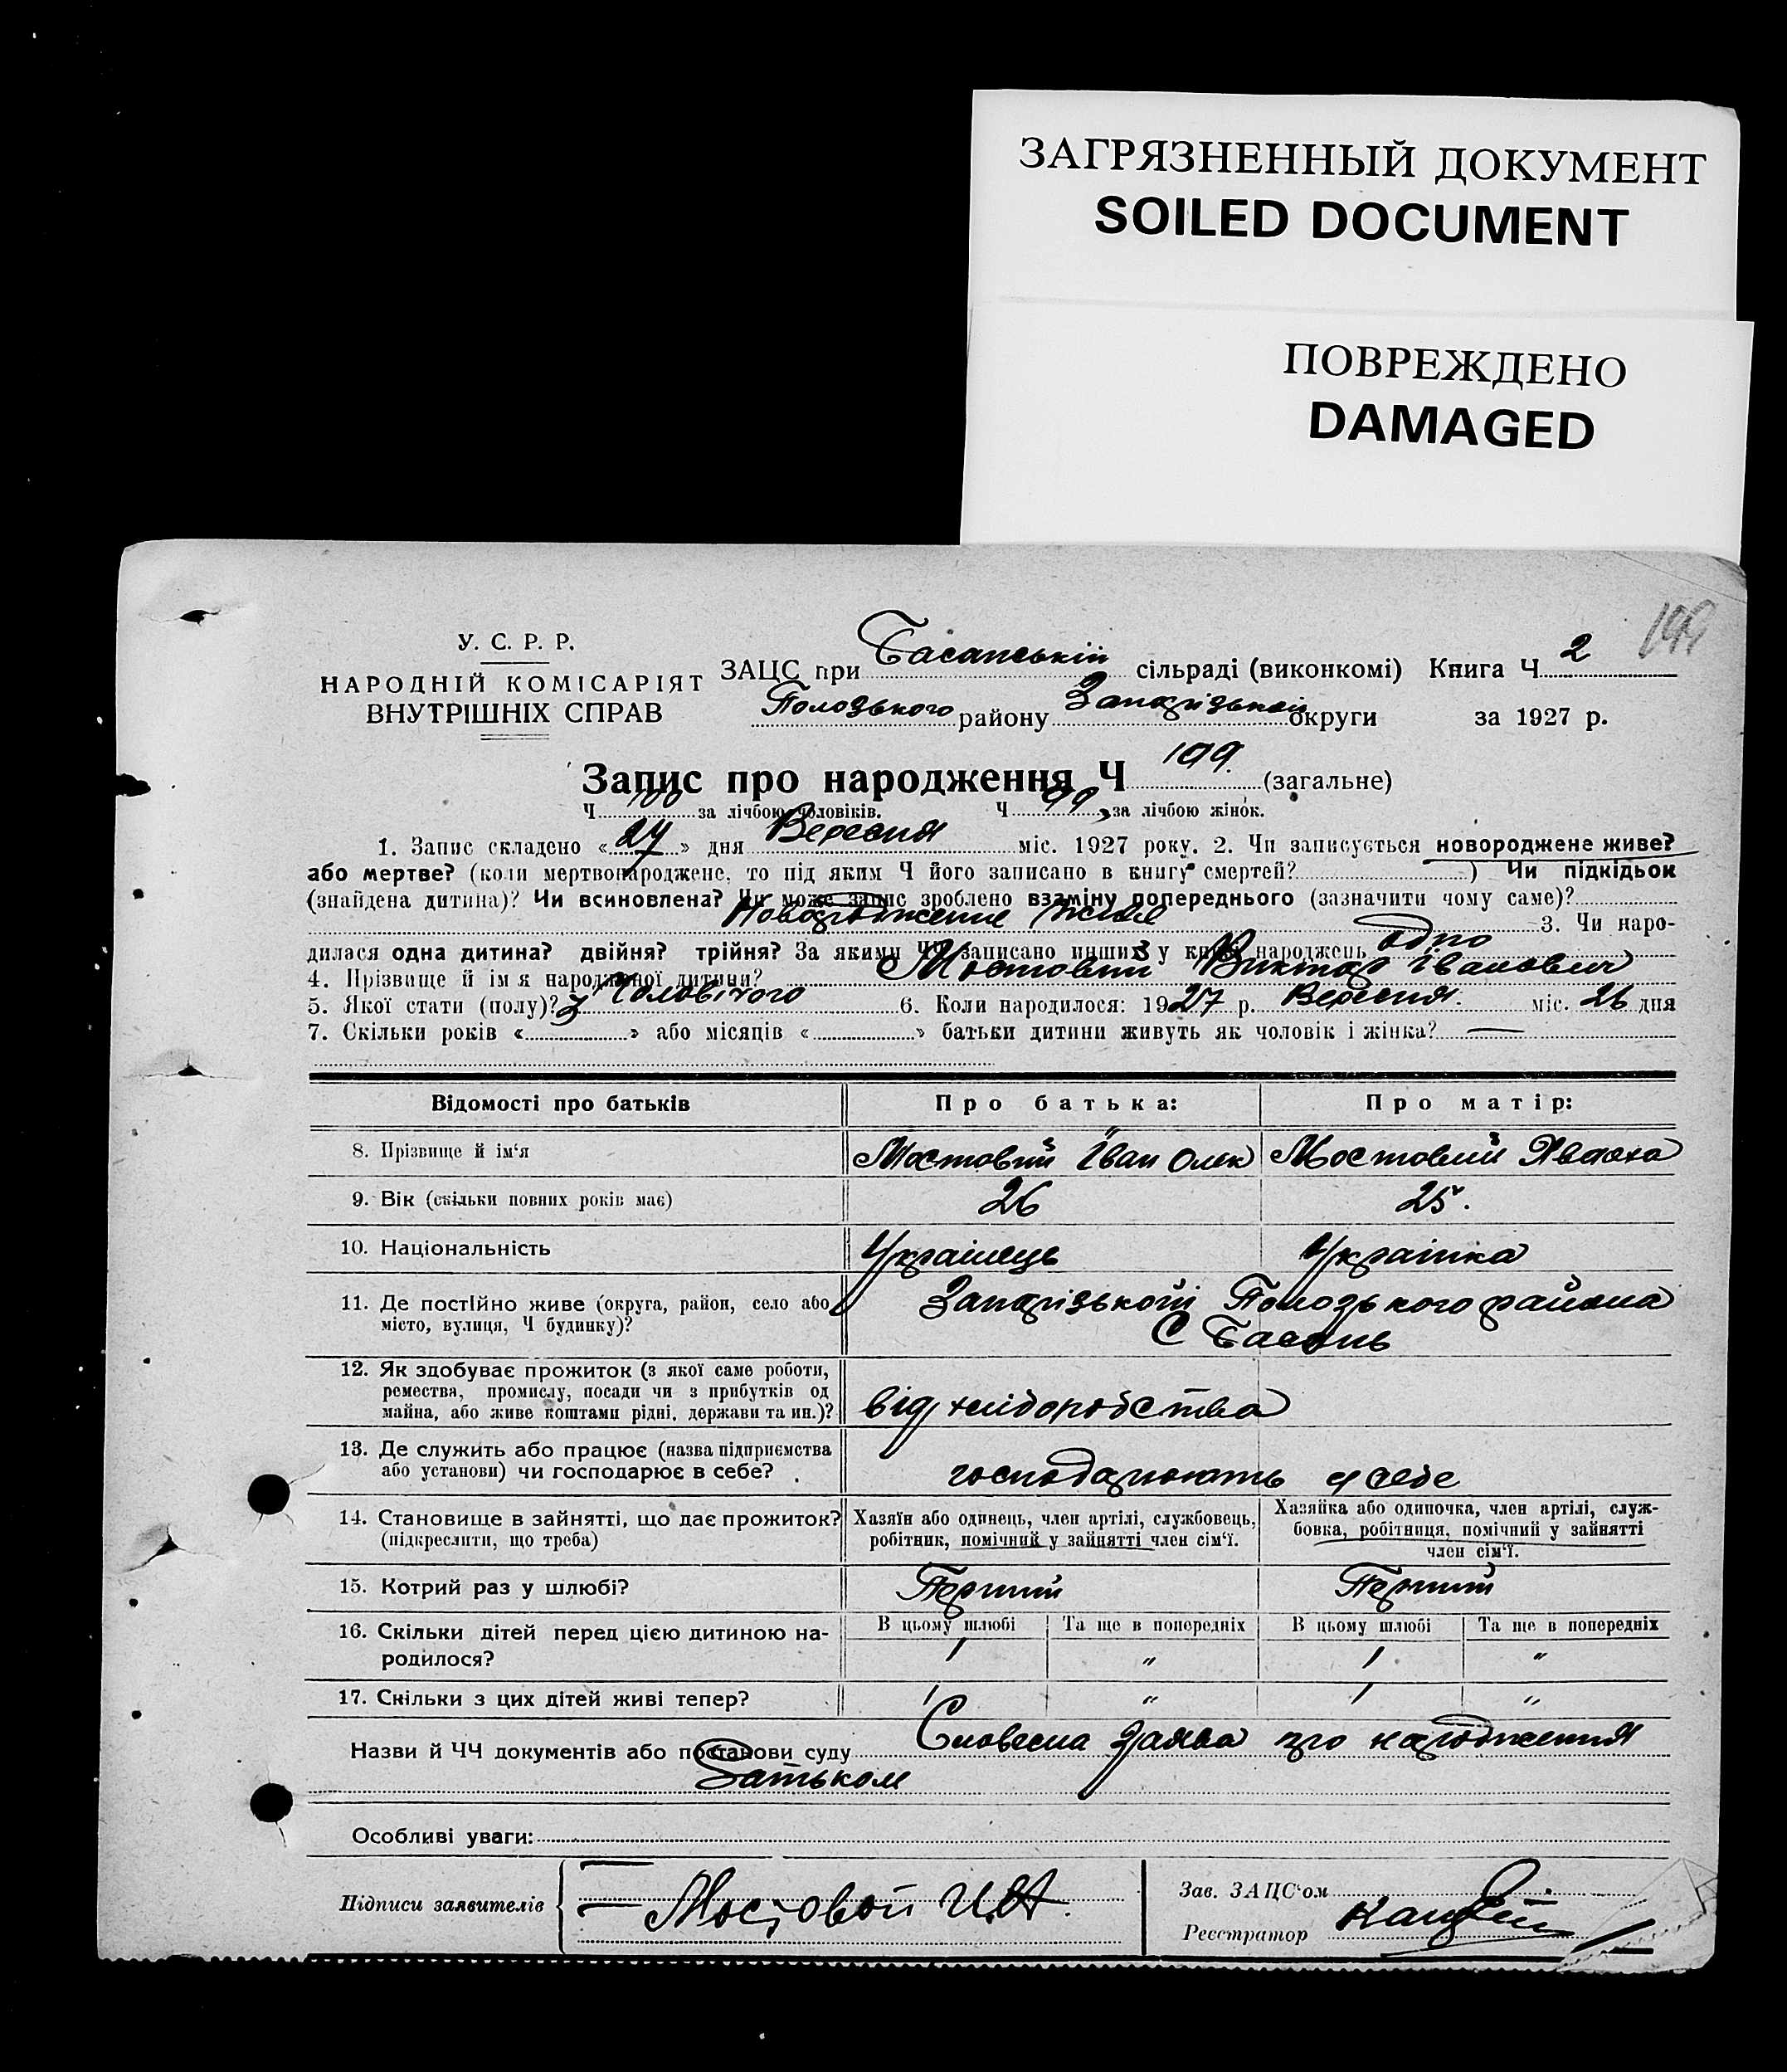 ЗАГРЯЗНЕННЫЙ ДОКУМЕНТ
SOILED DOCUMENT
ПОВРЕЖДЕНО
DAMAGED
199
У. С. Р. Р.
НАРОДНІЙ КОМІСАРІЯТ
ВНУТРІШНІХ СПРАВ
ЗАЦС при Басанській сільраді (виконкомі) Книга Ч 2
Полозького району Запорізької округи за 1927 р.
Запис про народження Ч 199. (загальне)
Ч 100 за лічбою чоловіків. Ч 99 за лічбою жінок.
1. Запис складено «27» дня Вересня міс. 1927 року. 2. Чи записується новороджене живе?
або мертве? (коли мертвонароджене, то під яким Ч його записано в книгу смертей? ) Чи підкідьок
(знайдена дитина)? Чи всиновлена? Чи може запис зроблено взаміну попереднього (зазначити чому саме)?
Новородженне живе 3. Чи наро-
дилася одна дитина? двійня? трійня? За якими ЧЧ записано инших у книзі народжень одно
4. Прізвище й ім'я народженої дитини? Мостовий Виктор Іванович
5. Якої стати (полу)? Чоловічого 6. Коли народилося: 1927 р. Вересня. міс. 26 дня
7. Скільки років « » або місяців « » батьки дитини живуть як чоловік і жінка? —
Відомості про батьків Про батька: Про матір:
8. Прізвище й ім'я Мостовий Іван Олек Мостовий Явдоха
9. Вік (скільки повних років має) 26 25.
10. Національність Українець Українка
11. Де постійно живе (округа, район, село або Запорізької Полозького района
місто, вулиця, Ч будинку)? С Басань
12. Як здобуває прожиток (з якої саме роботи,
ремества, промислу, посади чи з прибутків од
майна, або живе коштами рідні, держави та ин.)? від хліборобства
13. Де служить або працює (назва підприємства
або установи) чи господарює в себе? господарюють у себе
14. Становище в зайнятті, що дає прожиток?
(підкреслити, що треба)
Хазяїн або одинець, член артілі, службовець,
робітник, помічний у зайнятті член сім'ї.
Хазяйка або одиночка, член артілі, служ-
бовка, робітниця, помічний у зайнятті
член сім'ї.
15. Котрий раз у шлюбі? Перший Перший
16. Скільки дітей перед цією дитиною на-
родилося?
В цьому шлюбі Та ще в попередніх В цьому шлюбі Та ще в попередніх
1 " 1 "
17. Скільки з цих дітей живі тепер? 1 " 1 "
Назви й ЧЧ документів або постанови суду Словесна заява про народження
Батьком
Особливі уваги:
Підписи заявителів Мостовой И.А.
Зав. ЗАЦС'ом
Реєстратор